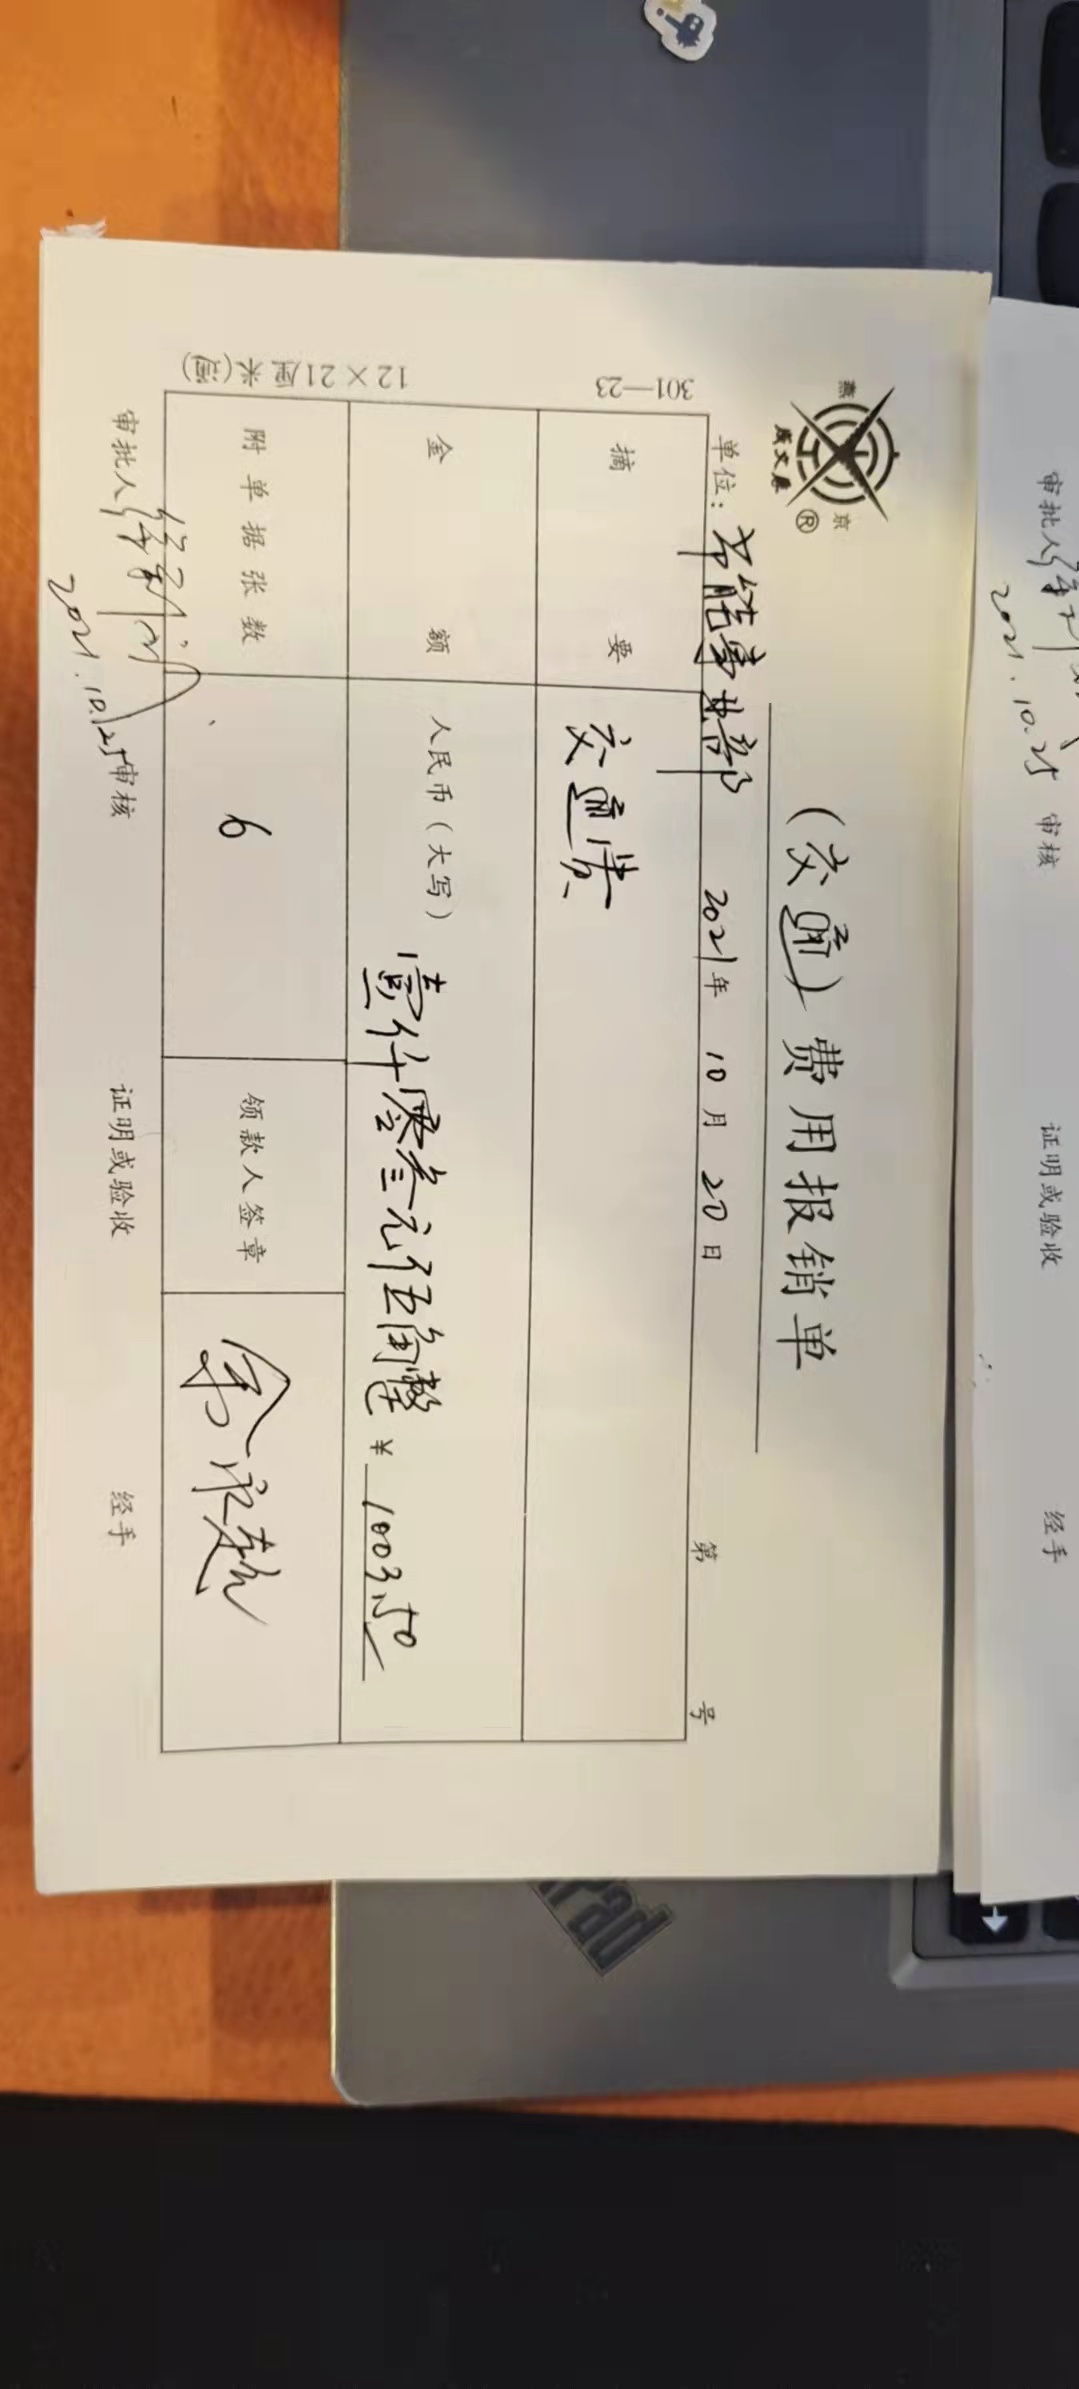 燕京
成文厚®
(交通)费用报销单
单位:节能事业部 2021年 10月 20日 第 号
301—23
摘要 交通费
金额 人民币(大写)壹仟零叁元伍角整 ¥1003.50
12×21厘米(通)
附单据张数 6 领款人签章
审批人 审核 证明或验收 经手
2021.10.25
审批人 审核 证明或验收 经手
2021.10.25
Pad